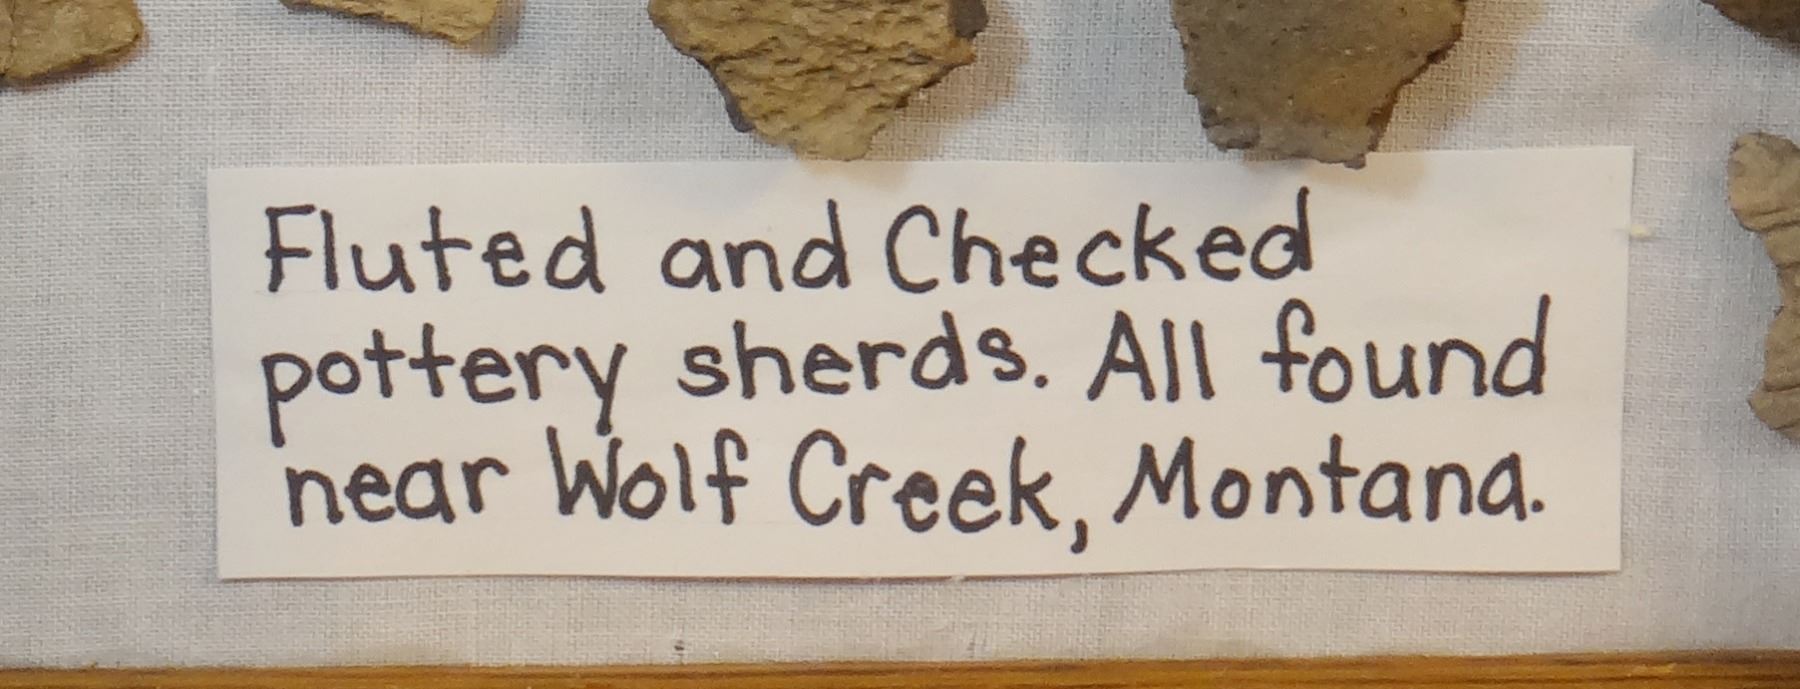 Fluted and Checked
pottery sherds. All found
near Wolf Creek, Montana.